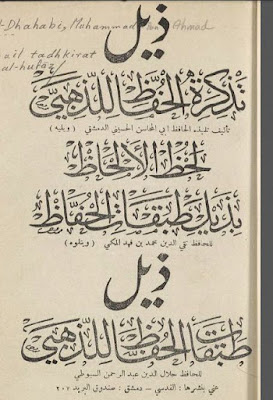 -Dhahabi, Muhammad ibn Ahmad
ail tadhkirat
al-hufaz/
ذيل
تذكرة الحفاظ للذهبي
تأليف تلميذه الحافظ ابي المحاسن الحسيني الدمشقي ( ويليه )
لحظ الألحاظ
بذيل طبقات الحفاظ
للحافظ تقي الدين محمد بن فهد المكي ( ويتلوه )
ذيل
طبقات الحفاظ للذهبي
للحافظ جلال الدين عبد الرحمن السيوطي
عني بنشرها : القدسي – دمشق : صندوق البريد ٢٠٧